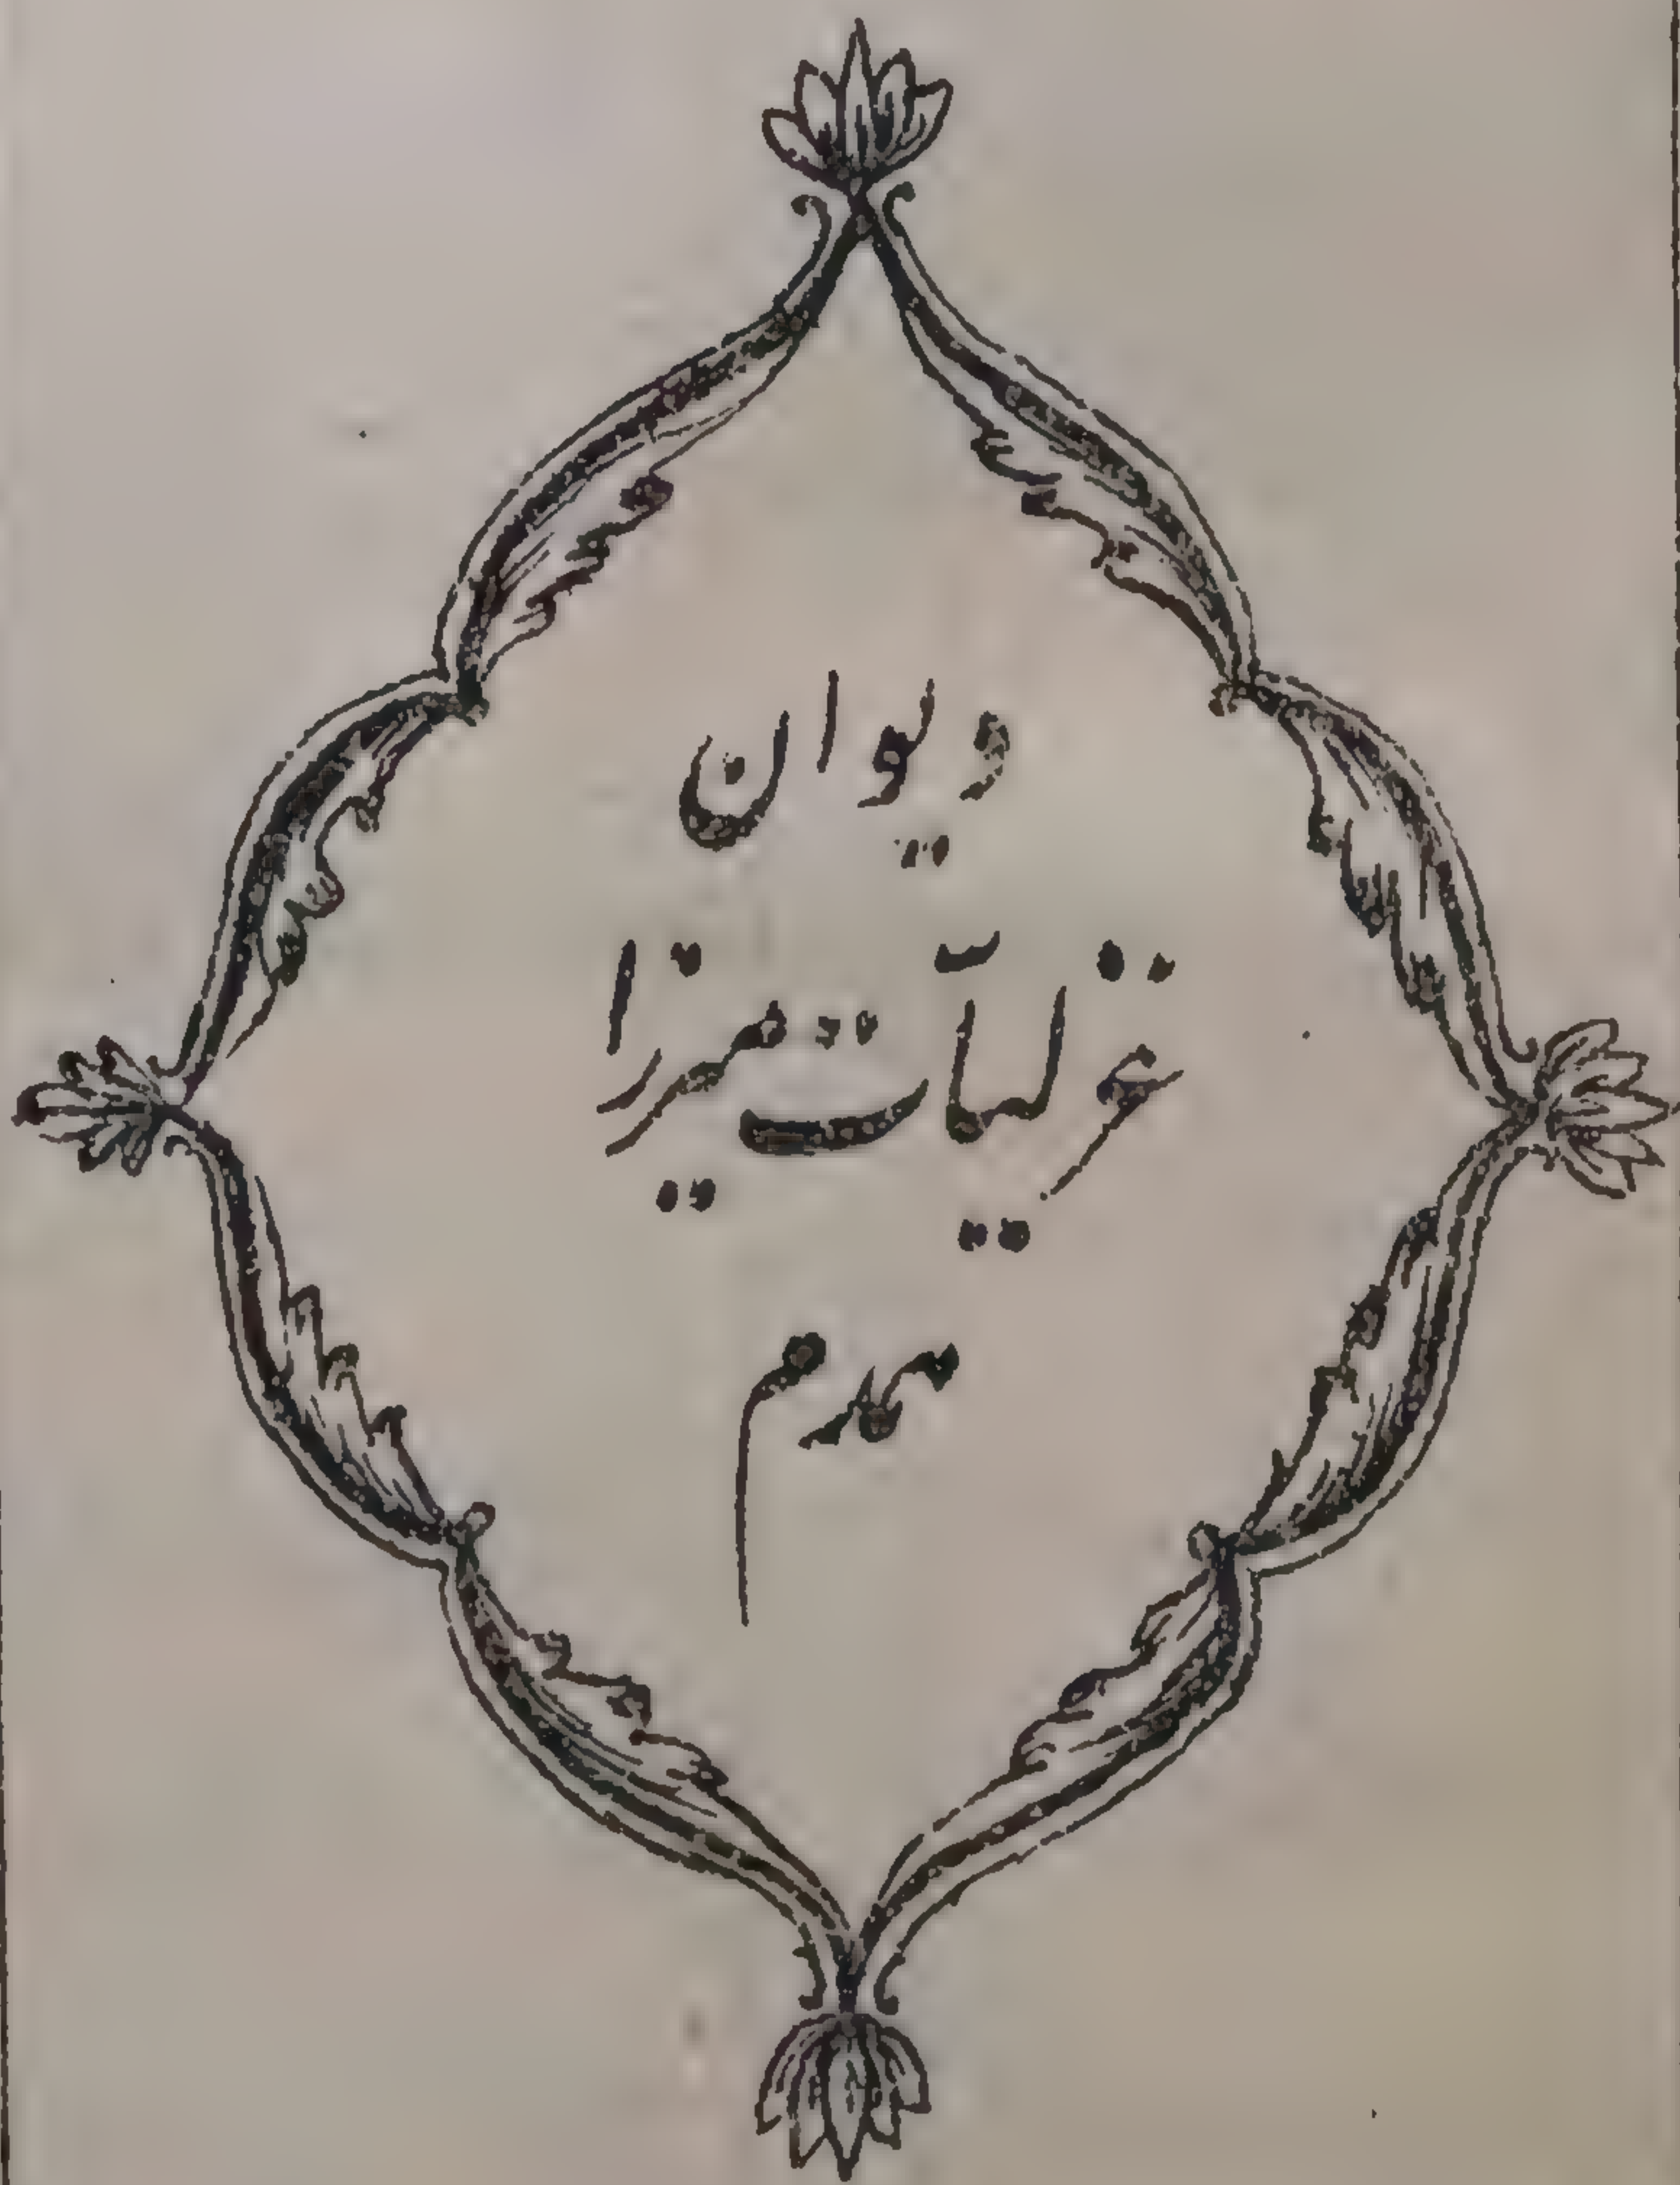 دیوان
غزلیّات میرزا
همدم